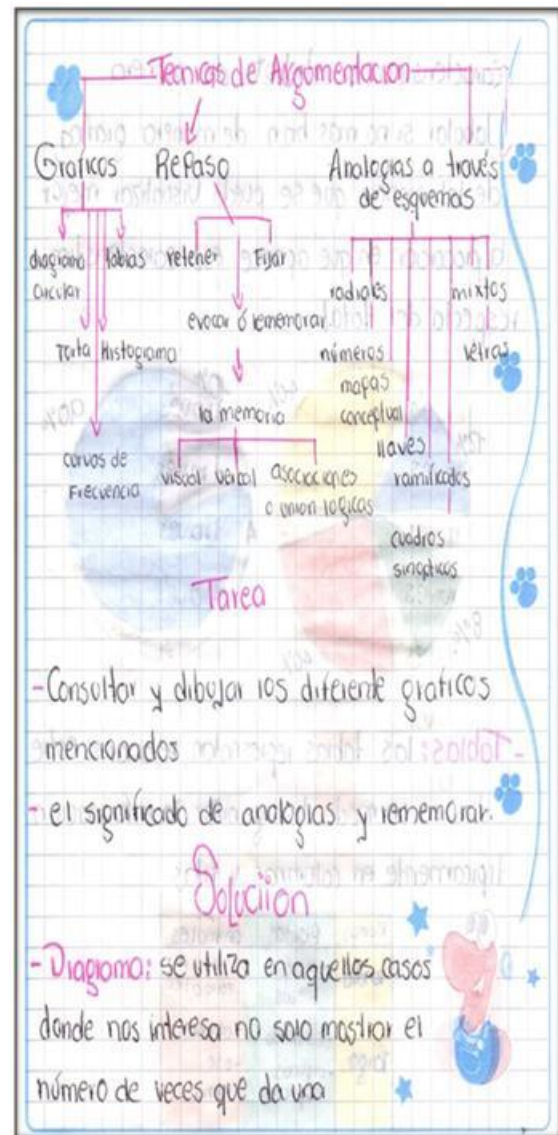 Tecnicas de Argomentacion
Graficos
Repaso
Analogias a través
de esquemas
diagrama
circular
tablas
retener
Fijar
radiales
mixtos
evocar ó rememorar
Torta
Histograma
números
letras
mapas
conceptual
la memoria
llaves
curvas de
Frecuencia
visual
verbal
asociaciones
o union logicas
ramificados
cuadros
sinopticos
Tarea
-Consultar y dibujar los diferente graficos
mencionados
- el significado de analogias y rememorar.
Soluciion
- Diagrama: se utiliza en aquellos casos
donde nos interesa no solo mostrar el
número de veces que da una